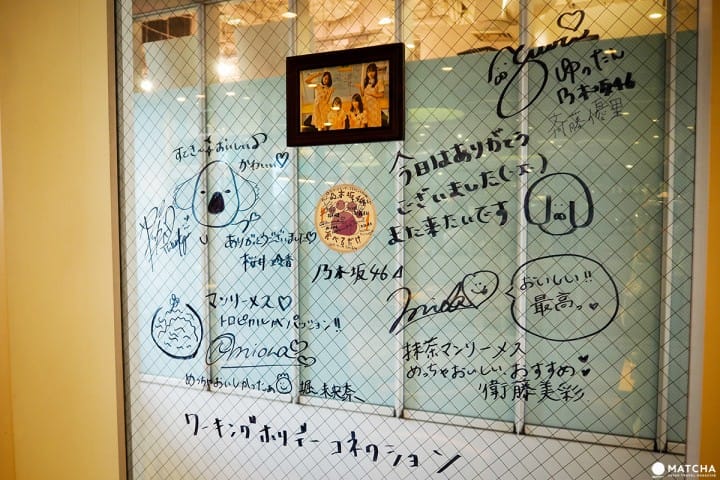 ゆったん
乃木坂46
斎藤優里
すてき〜おいしい♪
かわいい♡
ありがとうございました♡
桜井玲香
今日はありがとう
ございました(・エ・)
また来たいです
乃木坂46
マンリーメス♡
トロピカルペパッション!!
@miona♡
めっちゃおいしかったぁ
堀 未央奈
おいしい!!
最高っ
抹茶マンリーメス
めっちゃおいしい、おすすめ
衛藤美彩
ワーキングホリデーコネクション
MATCHA